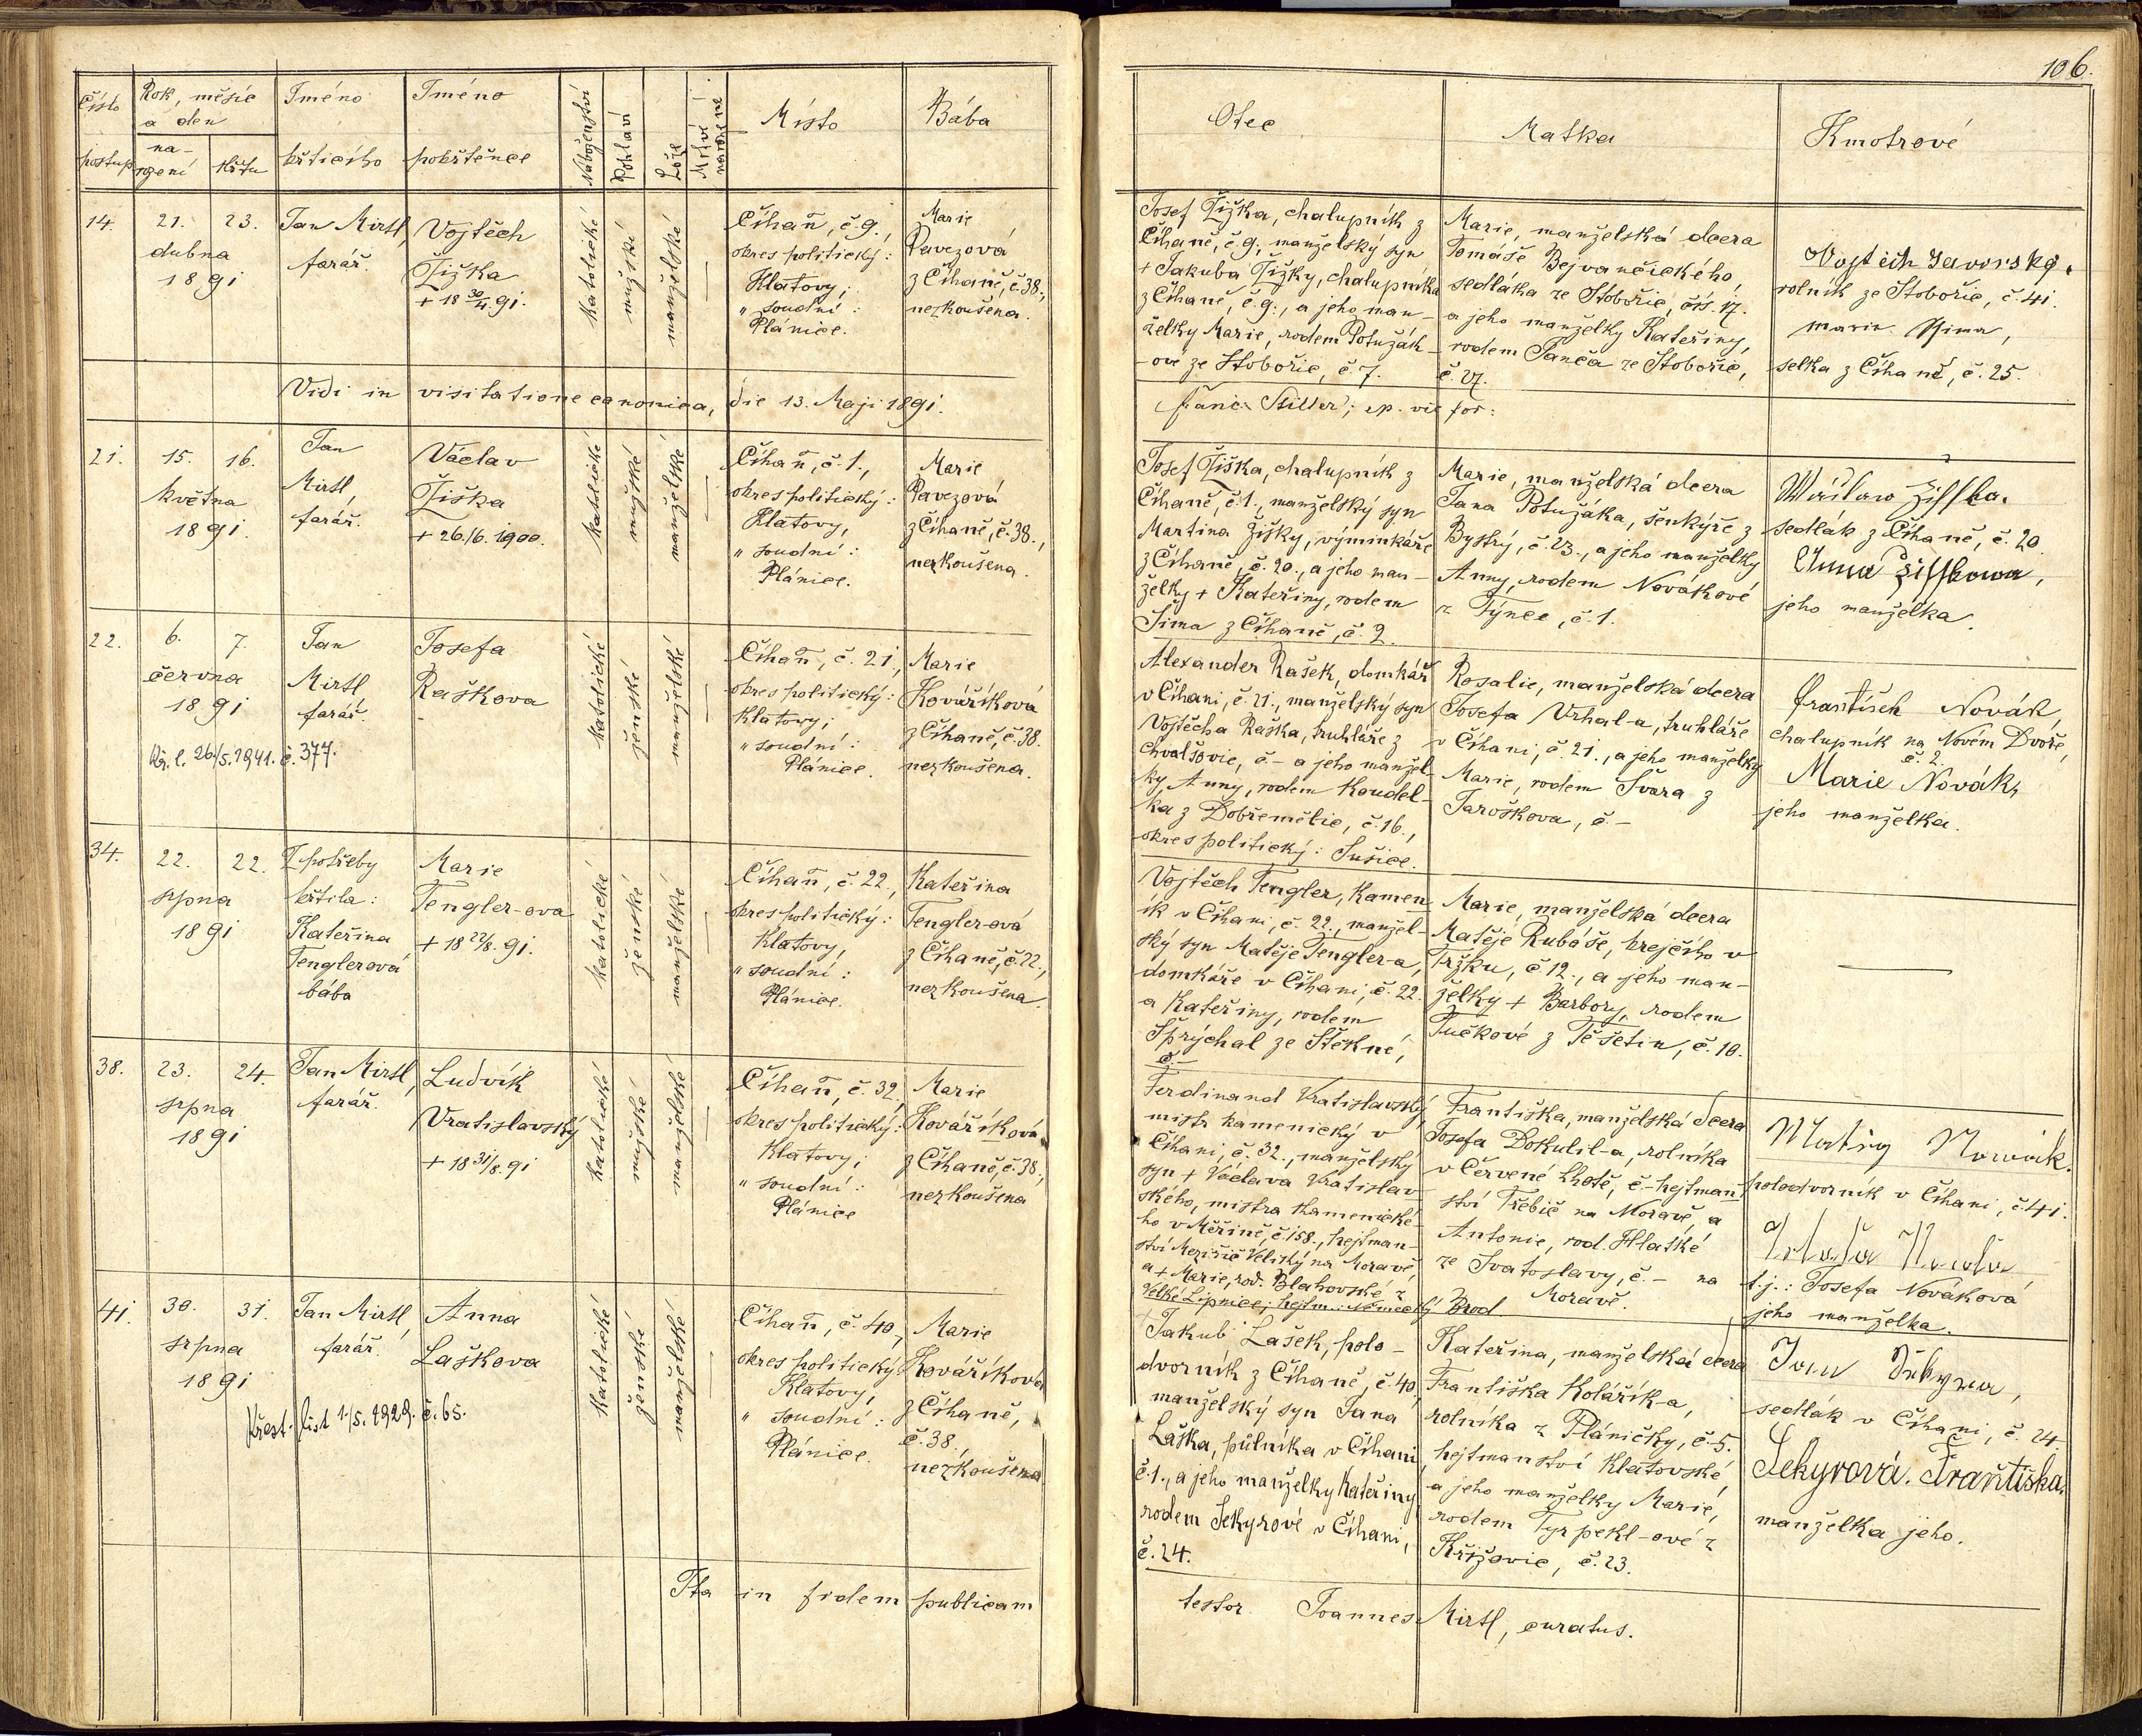 106.
Číslo
postup
Rok, měsíc
a den
na-
rození
křtu
Jméno
křticího
Jméno
pokřtěnce
Náboženství
Pohlaví
Lože
Mrtvi
narozené
Místo
Bába
Otec
Matka
Kmotrové
14.
21.
23.
dubna
1891
Jan Mirtl,
farář.
Vojtěch
Žižka
+ 18 30/4 91.
katolické
mužské
manželské
Číhaň, č. 9.,
okres politický:
Klatovy;
" soudní:
Plánice.
Marie
Pavezová
z Číhaně, č. 38.,
nezkoušena.
Josef Žižka, chalupník z
Číhaně, č. 9., manželský syn
+ Jakuba Žižky, chalupníka
z Číhaně, č. 9., a jeho man-
želky Marie, rodem Potužák-
ové ze Stobořic, č. 7.
Marie, manželská dcera
Tomáše Bejvančického,
sedláka ze Stobořic, čís. 17.
a jeho manželky Kateřiny,
rodem Panča ze Stobořic,
č. 27.
Vojtěch Javorský,
rolník ze Stobořic, č. 41.
Marie Šima,
selka z Číhaně, č. 25.
Vidi in visitatione canonica, die 13. Maji 1891.
Franc. Stiller; ep. vic for:
21.
15.
16.
května
1891.
Jan
Mirtl,
farář.
Václav
Žiška
+ 26./6. 1900.
katolické
mužské
manželské
Číhaň, č. 1.,
okres politický:
Klatovy,
" soudní:
Plánice.
Marie
Pavezová
z Číhaně, č. 38.,
nezkoušena.
Josef Žiška, chalupník z
Číhaně, č. 1., manželský syn
Martina Žišky, výminkáře
z Číhaně, č. 20., a jeho man-
želky + Kateřiny, rodem
Šíma z Číhaně, č. 2.
Marie, manželská dcera
Jana Potužáka, šenkýře z
Bystrý, č. 23., a jeho manželky
Anny, rodem Novákové
z Týnce, č. 1.
Wáclaw Žisska.
sedlák z Číhaně, č. 20.
Anna Žisskowa,
jeho manželka.
22.
6.
7.
června
1891
Jan
Mirtl,
farář.
Josefa
Raškova
Kř. l. 26/5. 1941. č. 377.
katolické
ženské
manželské
Číhaň, č. 21,
okres politický:
Klatovy;
" soudní:
Plánice.
Marie
Kovaříková
z Číhaně, č. 38.
nezkoušena.
Alexander Rašek, domkář
v Číhani, č. 21., manželský syn
Vojtěcha Raška, truhláře z
Chvalšovic, č. - a jeho manžel-
ky, Anny, rodem Koudel-
ka z Dobřemělic, č. 16.,
okres politický: Sušice.
Rosalie, manželská dcera
Josefa Vrhal-a, truhláře
v Číhani, č. 21., a jeho manželky
Marie, rodem Švara z
Jaroškova, č. -
František Novák,
chalupník na Novém Dvoře,
č. 2.
Marie Novák,
jeho manželka.
34.
22.
22.
srpna
1891
Z potřeby
křtila:
Kateřina
Tenglerová
bába
Marie
Tengler-ova
+ 18 22/8. 91.
katolické
ženské
manželské
Číhaň, č. 22.,
okres politický:
Klatovy,
" soudní:
Plánice.
Kateřina
Tengler-ová
z Číhaně, č. 22.,
nezkoušena.
Vojtěch Tengler, kamen-
ík v Číhani, č. 22., manžel-
ský syn Matěje Tengler-a,
domkáře v Číhani, č. 22.
a Kateřiny, rodem
Sprýchal ze Štěkně,
č. -
Marie, manželská dcera
Matěje Rubáše, krejčího v
Tržku, č. 12., a jeho man-
želky + Barbory, rodem
Tučkové z Těšetin, č. 10.
38.
23.
24.
srpna
1891
Jan Mirtl,
farář.
Ludvík
Vratislavský
+ 18 31/8. 91
katolické
mužské
manželské
Číhaň, č. 32,
okres politický:
Klatovy;
" soudní:
Plánice
Marie
Kovaříková
z Číhaně, č. 38.,
nezkoušena
Ferdinand Vratislavský,
mistr kamenický v
Číhani, č. 32., manželský
syn + Václava Vratislav-
ského, mistra kamenické-
ho v Měříně, č. 158., hejtman-
ství Meziříč Veliký na Moravě,
a + Marie, rod. Blahovské z
Velké Lipnice, hejtm.: Německý Brod
Františka, manželská dcera
Josefa Dokulil-a, rolníka
v Červené Lhotě, č. - hejtman-
ství Třebíč na Moravě, a
Antonie, rod. Hlatké
ze Svatoslavy, č. - na
Moravě.
Matěj Nowák.
polodvorník v Číhani, č. 41.
t.j.: Josefa Nováková
jeho manželka.
41.
30.
31.
srpna
1891
Jan Mirtl,
farář.
Anna
Laškova
Křest. list 1./5. 1929. č. 65.
katolické
ženské
manželské
Číhaň, č. 40,
okres politický:
Klatovy,
" soudní:
Plánice.
Marie
Kovaříková
z Číhaně,
č. 38.,
nezkoušena
Jakub Lašek, polo-
dvorník z Číhaně, č. 40,
manželský syn Jana
Laška, půlníka v Číhani,
č. 1., a jeho manželky Kateřiny,
rodem Sekyrové v Číhani,
č. 24.
Kateřina, manželská dcera
Františka Kolářík-a,
rolníka z Pláničky, č. 5.
hejtmanství Klatovské,
a jeho manželky Marie,
rodem Tyrpekl-ové z
Křižovic, č. 23.
Jan Sekyra,
sedlák v Číhani, č. 24.
Sekyrová. Františka.
manželka jeho.
Ita in fidem publicam
testor Joannes Mirtl, curatus.